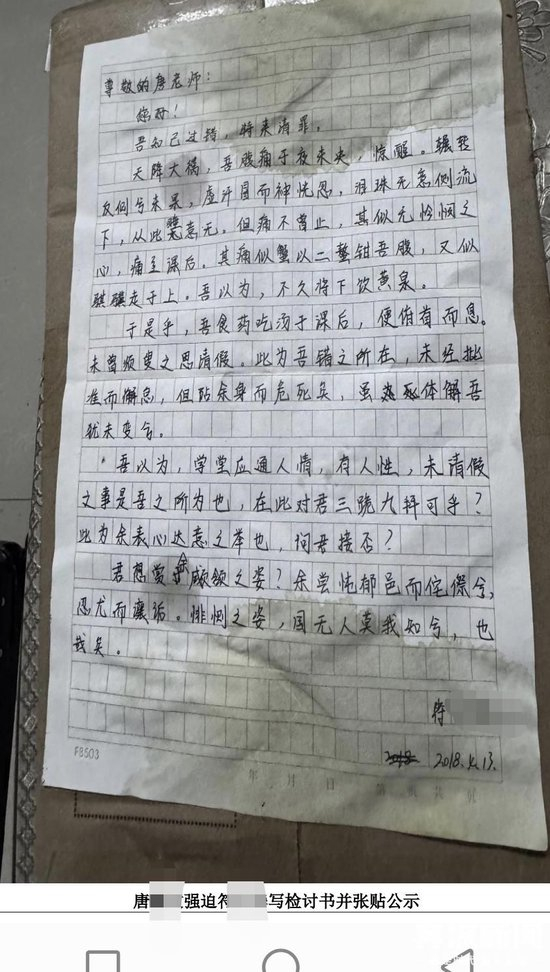 尊敬的唐老师：
您好！
吾知己过错，将来请罪。
天降大祸，吾腹痛于夜未央，惊醒。辗转
反侧兮未果，虚汗冒而神恍忽，泪珠无意侧流
下，从此意无，但痛不曾止，其似无怜悯之
心，痛至课后。其痛似蟹以二螯钳吾腹，又似
骐骥走于上。吾以为，不久将下饮黄泉。
于是乎，吾食药吃汤于课后，便俯首而息。
未曾须臾之思请假。此为吾错之所在，未经批
准而懈怠，但阽余身而危死矣，虽体解吾
犹未变兮。
吾以为，学堂应通人情，有人性，未请假
之事是吾之所为也，在此对君三跪九拜可乎？
此为余表心达意之举也，问君接否？
君想爱余顑颔之姿？余尝忳郁邑而侘傺兮，
忍尤而攘诟。悱恻之姿，国无人莫我知兮，也
哉矣。
符
2018. 13.
F8503
年 月 日 第 页 共 页
唐 强迫符 写检讨书并张贴公示